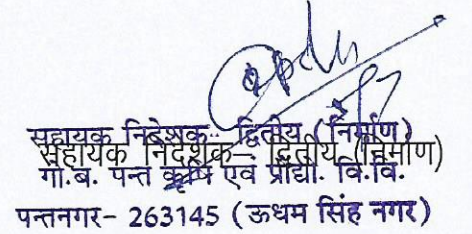 सहायक निदेशक- द्वितीय (निर्माण)
सहायक निदेशक– द्वितीय (निर्माण)
गो.ब. पन्त कृषि एवं प्रौद्यो. वि.वि.
पन्तनगर- 263145 (ऊधम सिंह नगर)